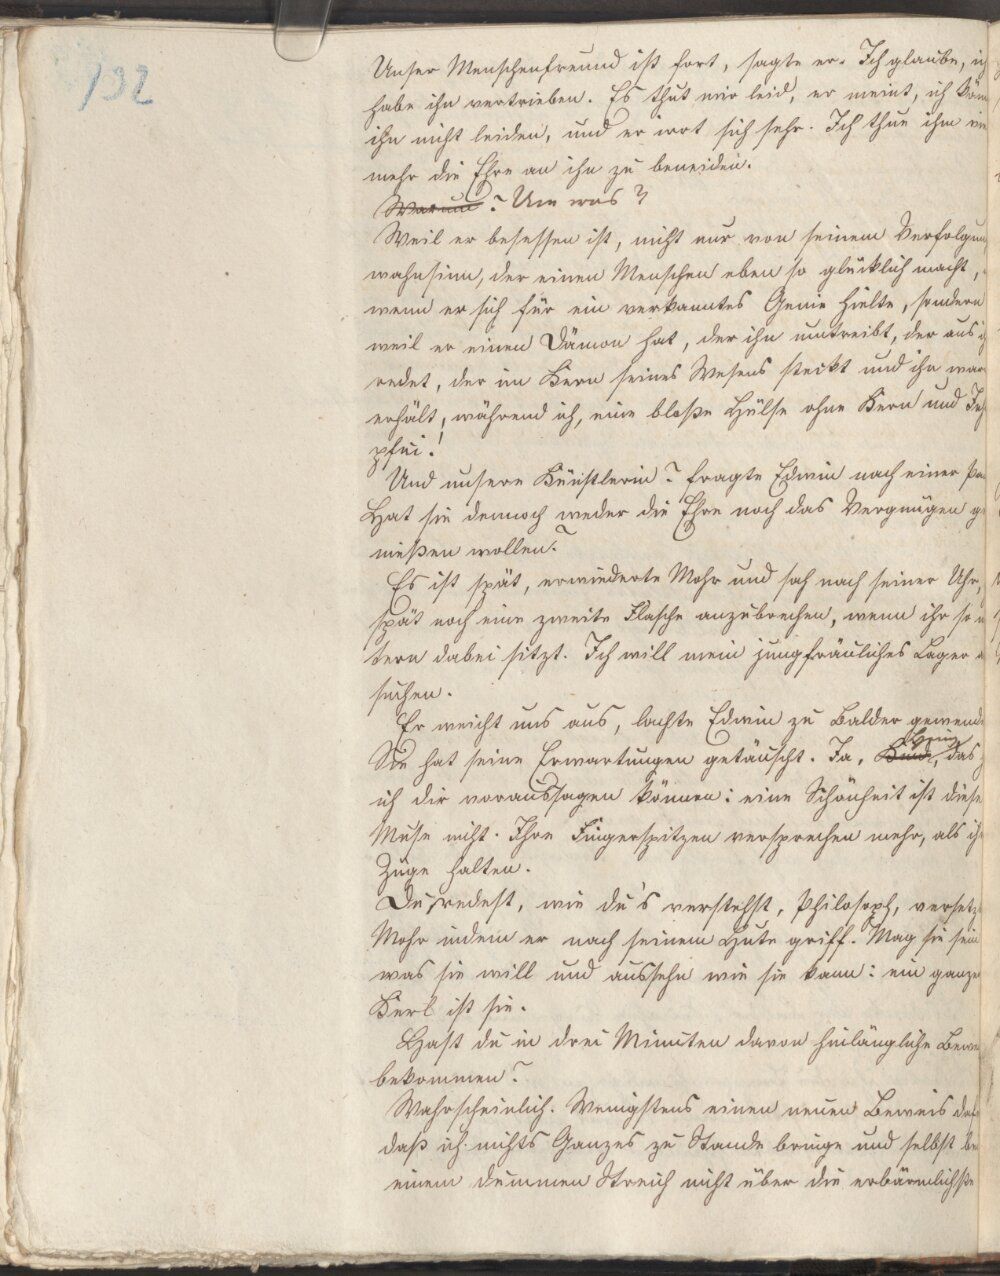 132
Unser Menschenfreund ist fort, sagte er. Ich glaube, ich
habe ihn vertrieben. Es thut mir leid, er meint, ich kön
ihn nicht leiden, und er irrt sich sehr. Ich thue ihm vie
mehr die Ehre an ihn zu beneiden.
Warum? Um was?
Weil er besessen ist, nicht nur von seinem Verfolgun
wahnsinn, der einen Menschen eben so glücklich macht,
wenn er sich für ein verkanntes Genie hielte, sondern
weil er einen Dämon hat, der ihn umtreibt, der aus i
redet, der im Kern seines Wesens steckt und ihn war
erhält, während ich, eine bloße Hülse ohne Kern und
pfui!
Und unsere Künstlerin? fragte Edwin nach einer Pa
Hat sie dennoch weder die Ehre noch das Vergnügen ge
nießen wollen?
Es ist spät, erwiederte Mohr und sah nach seiner Uhr,
spät noch eine zweite Flasche anzubrechen, wenn ihr so n
tern dabei sitzt. Ich will mein jungfräuliches Lager a
suchen.
Er weicht uns aus, lachte Edwin zu Balder gewend
Sie hat seine Erwartungen getäuscht. Ja, Heinz, das
ich dir voraussagen können: eine Schönheit ist diese
Muse nicht. Ihre Fingerspitzen versprechen mehr, als ih
Züge halten.
Du redest, wie du's verstehst, Philosoph, versetz
Mohr indem er nach seinem Hute griff. Mag sie sein
was sie will und aussehn wie sie kann: ein ganze
Kerl ist sie.
Hast du in drei Minuten davon hinlängliche Bewe
bekommen?
Wahrscheinlich. Wenigstens einen neuen Beweis daf
daß ich nichts Ganzes zu Stande bringe und selbst be
einem dummen Streich nicht über die erbärmlichste